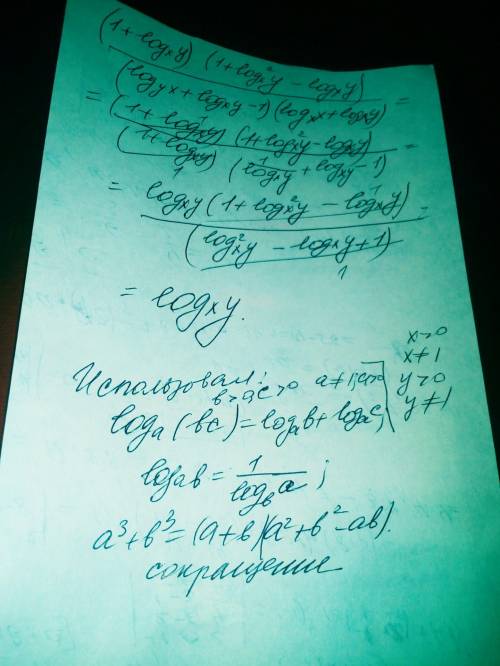 (1 + log_x y) (1 + log²_x y − log_x y)
(log_y x + log_x y − 1) (log_x x + log_x y) =
= (1 + log_x y) (1 + log²_x y − log_x y)
(1 + log_x y) (1/log_x y + log_x y − 1) =
= log_x y (1 + log²_x y − log_x y)
(log²_x y − log_x y + 1) =
= log_x y.
Использовал:
x>0
x≠1
y>0
y≠1
log_a (bc) = log_a b + log_a c;
log_a b = 1/log_b a ;
a³ + b³ = (a+b)(a² + b² − ab).
сокращение